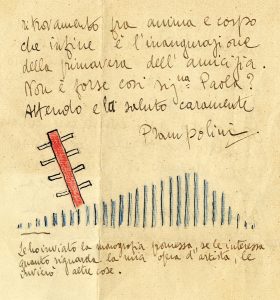 ritrovamento fra anima e corpo
che infine è l'inaugurazione
della primavera dell'amicizia.
Non è forse così sig.na Paola?
Attendo e la saluto caramente
Prampolini
Le ho inviato la monografia promessa, se le interessa
quanto riguarda la mia opera d'artista, le
invierò altre cose.